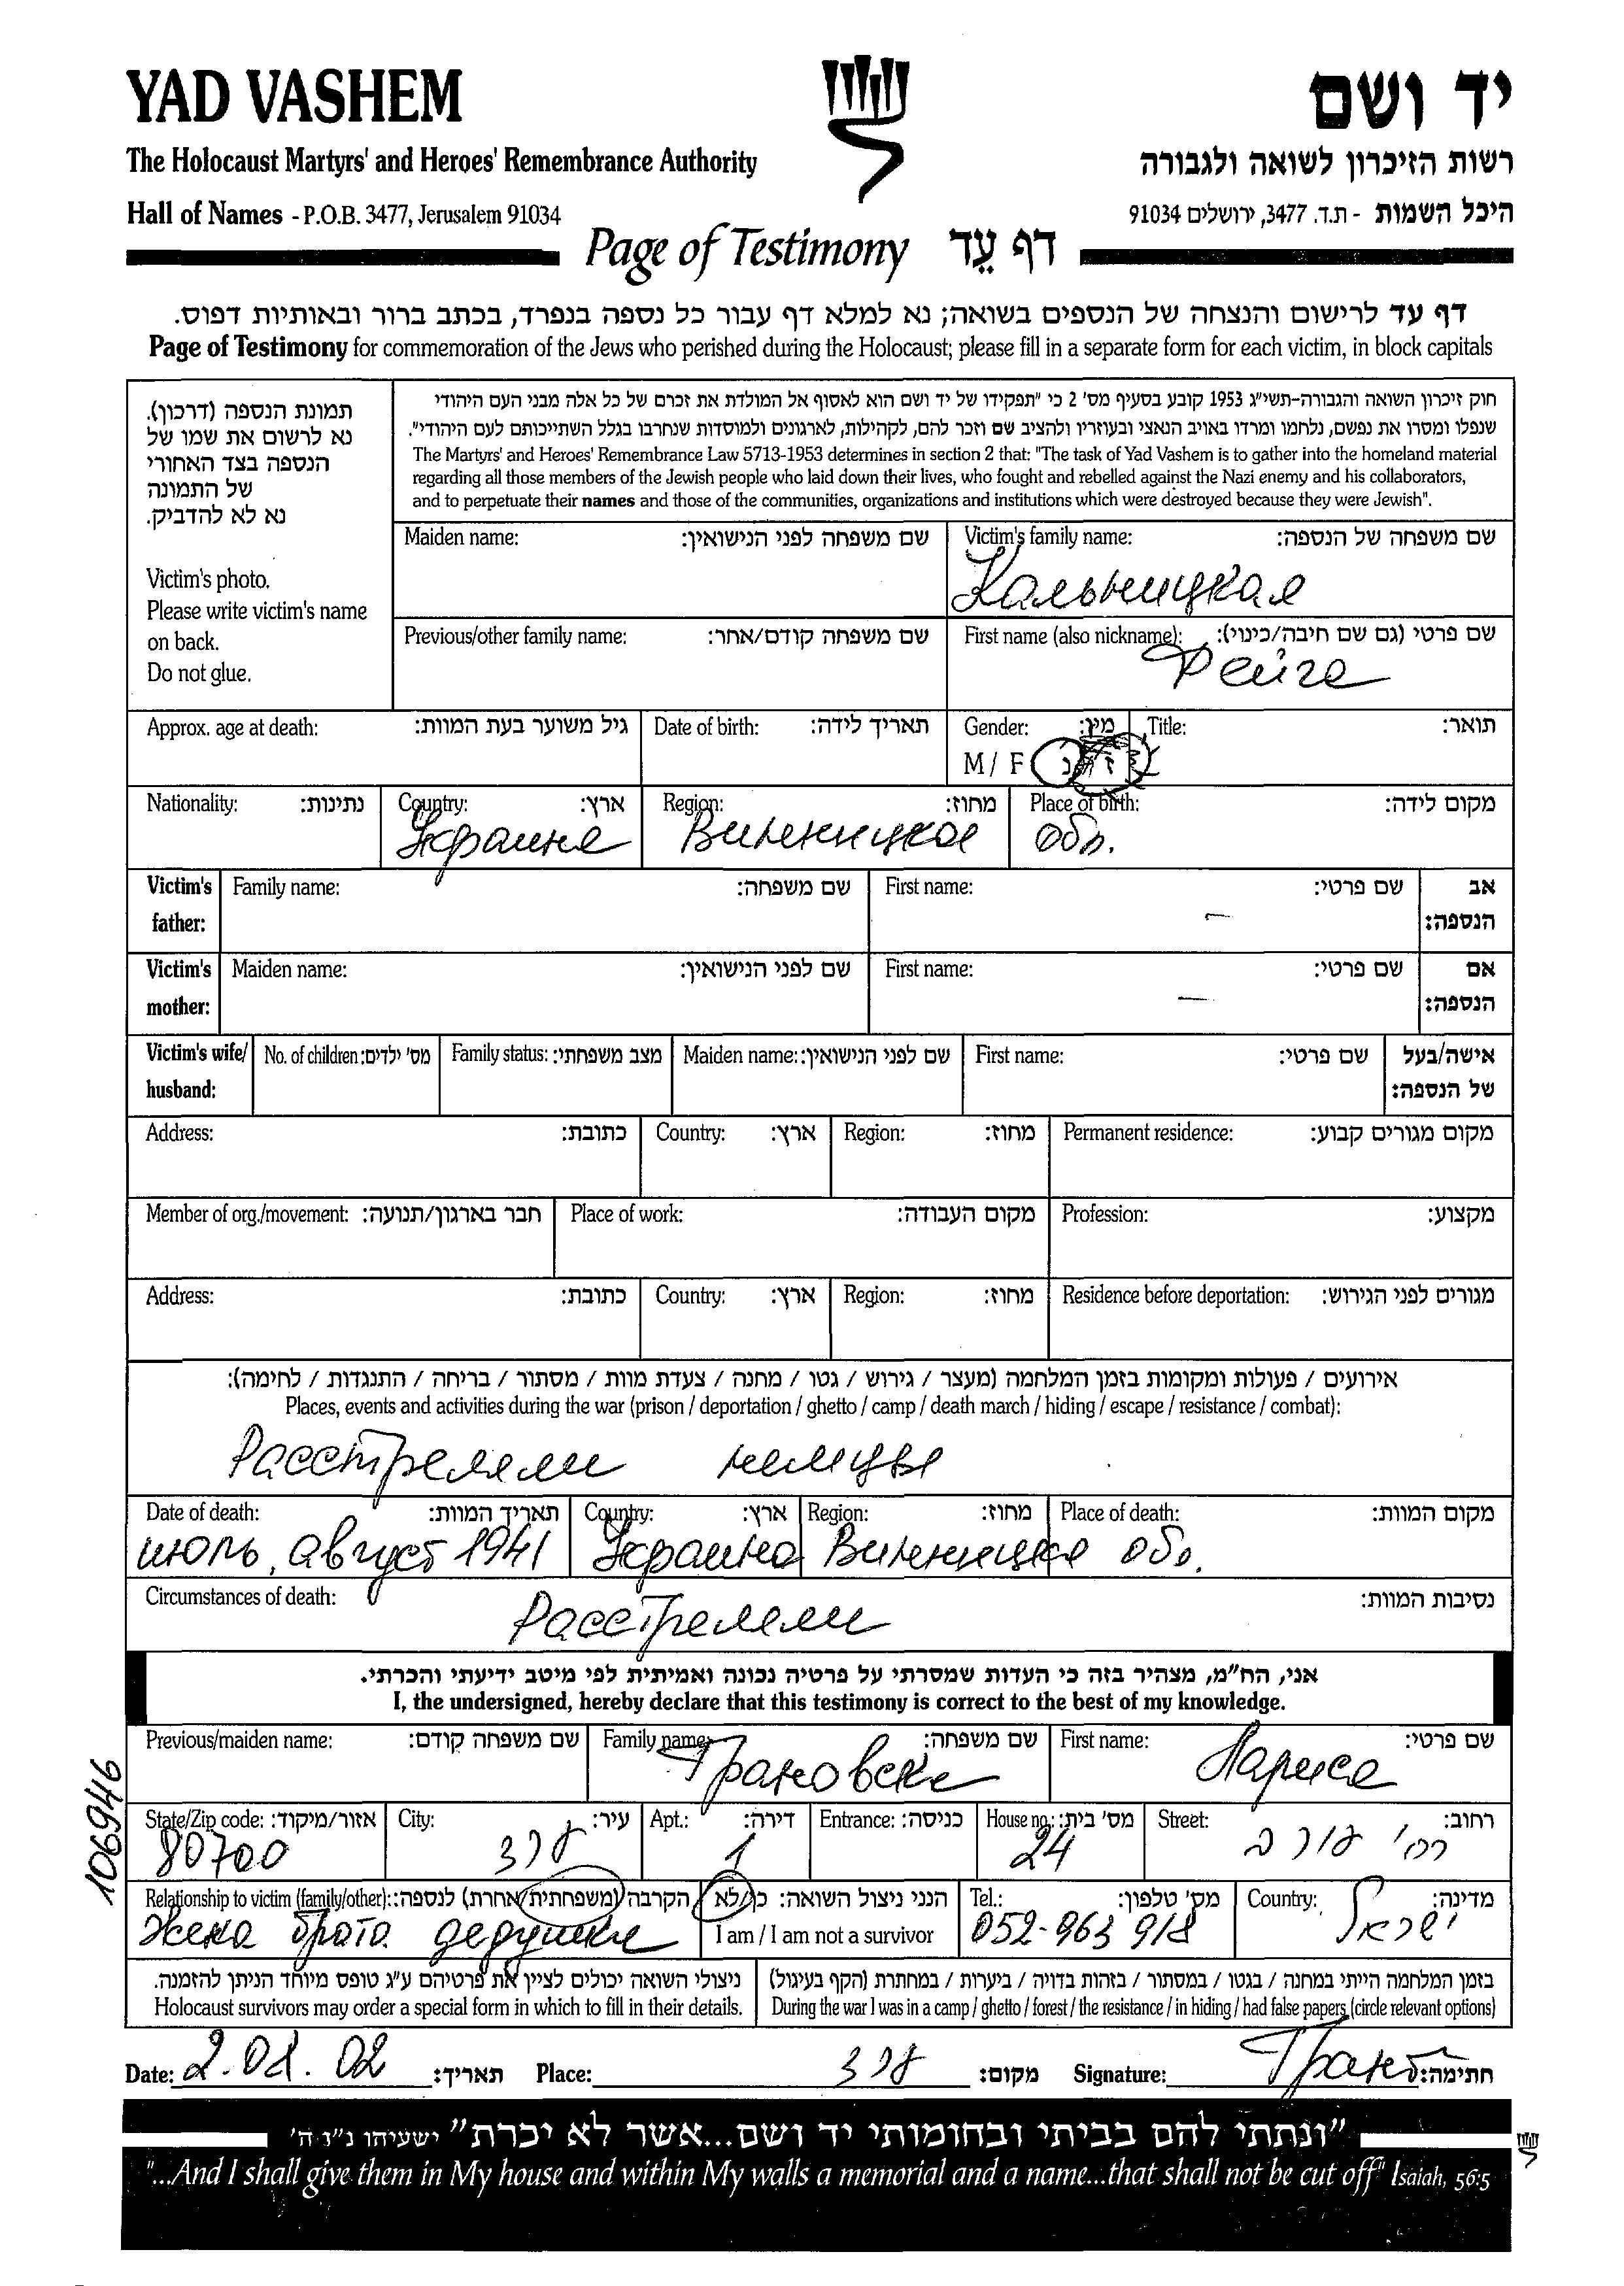 YAD VASHEM
יד ושם
The Holocaust Martyrs' and Heroes' Remembrance Authority
רשות הזיכרון לשואה ולגבורה
Hall of Names - P.O.B. 3477, Jerusalem 91034
היכל השמות - ת.ד. 3477, ירושלים 91034
Page of Testimony דף עֵד
דף עד לרישום והנצחה של הנספים בשואה; נא למלא דף עבור כל נספה בנפרד, בכתב ברור ובאותיות דפוס.
Page of Testimony for commemoration of the Jews who perished during the Holocaust; please fill in a separate form for each victim, in block capitals
תמונת הנספה (דרכון).
נא לרשום את שמו של
הנספה בצד האחורי
של התמונה
נא לא להדביק.
Victim's photo.
Please write victim's name
on back.
Do not glue.
חוק זיכרון השואה והגבורה-תשי"ג 1953 קובע בסעיף מס' 2 כי "תפקידו של יד ושם הוא לאסוף אל המולדת את זכרם של כל אלה מבני העם היהודי
שנפלו ומסרו את נפשם, נלחמו ומרדו באויב הנאצי ובעוזריו ולהציב שם וזכר להם, לקהילות, לארגונים ולמוסדות שנחרבו בגלל השתייכותם לעם היהודי".
The Martyrs' and Heroes' Remembrance Law 5713-1953 determines in section 2 that: "The task of Yad Vashem is to gather into the homeland material
regarding all those members of the Jewish people who laid down their lives, who fought and rebelled against the Nazi enemy and his collaborators,
and to perpetuate their names and those of the communities, organizations and institutions which were destroyed because they were Jewish".
Maiden name: שם משפחה לפני הנישואין:
Victim's family name: שם משפחה של הנספה:
Кальницкая
Previous/other family name: שם משפחה קודם/אחר:
First name (also nickname): שם פרטי (גם שם חיבה/כינוי):
Фейга
Approx. age at death: גיל משוער בעת המוות:
Date of birth: תאריך לידה:
Gender: מין:
M / F ז / נ
Title: תואר:
Nationality: נתינות:
Country: ארץ:
Украина
Region: מחוז:
Винницкая
Place of birth: מקום לידה:
обл.
Victim's father: Family name: שם משפחה:
First name: שם פרטי: אב הנספה:
–
Victim's mother: Maiden name: שם לפני הנישואין:
First name: שם פרטי: אם הנספה:
—
Victim's wife/ husband: No. of children: מס' ילדים:
Family status: מצב משפחתי:
Maiden name: שם לפני הנישואין:
First name: שם פרטי: אישה/בעל של הנספה:
Address: כתובת: Country: ארץ: Region: מחוז: Permanent residence: מקום מגורים קבוע:
Member of org./movement: חבר בארגון/תנועה: Place of work: מקום העבודה: Profession: מקצוע:
Address: כתובת: Country: ארץ: Region: מחוז: Residence before deportation: מגורים לפני הגירוש:
אירועים / פעולות ומקומות בזמן המלחמה (מעצר / גירוש / גטו / מחנה / צעדת מוות / מסתור / בריחה / התנגדות / לחימה):
Places, events and activities during the war (prison / deportation / ghetto / camp / death march / hiding / escape / resistance / combat):
Расстреляли немцы
Date of death: תאריך המוות: Country: ארץ: Region: מחוז: Place of death: מקום המוות:
июль, август 1941 Украина Винницкая обл.
Circumstances of death: נסיבות המוות:
Расстреляли
אני, הח"מ, מצהיר בזה כי העדות שמסרתי על פרטיה נכונה ואמיתית לפי מיטב ידיעתי והכרתי.
I, the undersigned, hereby declare that this testimony is correct to the best of my knowledge.
Previous/maiden name: שם משפחה קודם: Family name: שם משפחה: First name: שם פרטי:
Грановская Лариса
State/Zip code: אזור/מיקוד: City: עיר: Apt.: דירה: Entrance: כניסה: House no.: מס' בית: Street: רחוב:
80700 ערד 1 24
Relationship to victim (family/other): הקרבה (משפחתית/אחרת) לנספה:
Жена брата дедушки
הנני ניצול השואה: כן/לא
I am / I am not a survivor
Tel.: מס' טלפון:
052-963 918
Country: מדינה:
ישראל
ניצולי השואה יכולים לציין את פרטיהם ע"ג טופס מיוחד הניתן להזמנה.
Holocaust survivors may order a special form in which to fill in their details.
בזמן המלחמה הייתי במחנה / בגטו / במסתור / בזהות בדויה / ביערות / במחתרת (הקף בעיגול)
During the war I was in a camp / ghetto / forest / the resistance / in hiding / had false papers (circle relevant options)
Date: 2.01.02 תאריך: Place: ערד מקום: Signature: חתימה:
106946
"ונתתי להם בביתי ובחומותי יד ושם...אשר לא יכרת" ישעיהו נ"נ ה'
"...And I shall give them in My house and within My walls a memorial and a name...that shall not be cut off" Isaiah, 56:5